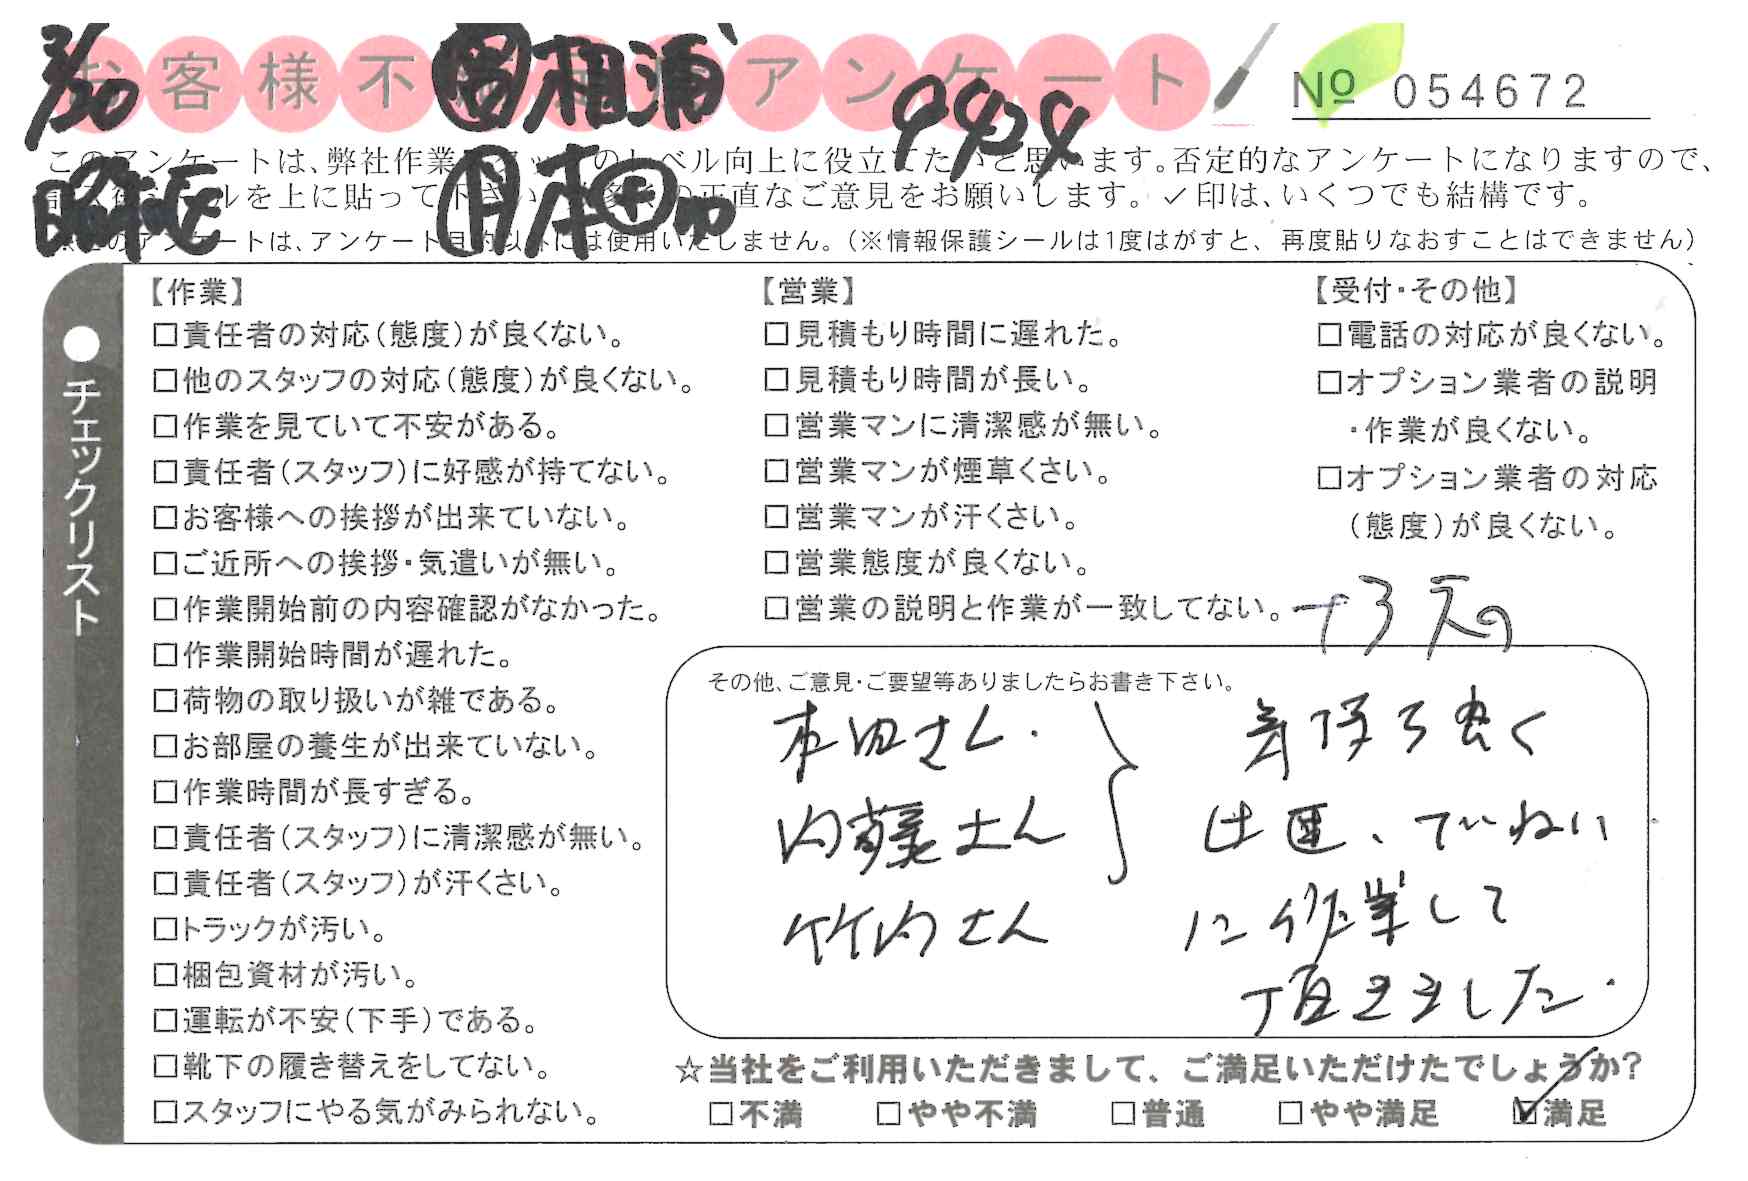 3/20
お客様不満足度アンケート
相浦
9424
№ 054672
このアンケートは、弊社作業スタッフのレベル向上に役立てたいと思います。否定的なアンケートになりますので、
ルを上に貼って下さい。多くの正直なご意見をお願いします。✓印は、いくつでも結構です。
このアンケートは、アンケート目的以外には使用いたしません。（※情報保護シールは1度はがすと、再度貼りなおすことはできません）
●チェックリスト
【作業】
□責任者の対応（態度）が良くない。
□他のスタッフの対応（態度）が良くない。
□作業を見ていて不安がある。
□責任者（スタッフ）に好感が持てない。
□お客様への挨拶が出来ていない。
□ご近所への挨拶・気遣いが無い。
□作業開始前の内容確認がなかった。
□作業開始時間が遅れた。
□荷物の取り扱いが雑である。
□お部屋の養生が出来ていない。
□作業時間が長すぎる。
□責任者（スタッフ）に清潔感が無い。
□責任者（スタッフ）が汗くさい。
□トラックが汚い。
□梱包資材が汚い。
□運転が不安（下手）である。
□靴下の履き替えをしてない。
□スタッフにやる気がみられない。
【営業】
□見積もり時間に遅れた。
□見積もり時間が長い。
□営業マンに清潔感が無い。
□営業マンが煙草くさい。
□営業マンが汗くさい。
□営業態度が良くない。
□営業の説明と作業が一致してない。
【受付・その他】
□電話の対応が良くない。
□オプション業者の説明
・作業が良くない。
□オプション業者の対応
（態度）が良くない。
その他、ご意見・ご要望等ありましたらお書き下さい。
本田さん
内藤さん
竹内さん
気持ち良く
迅速、ていねい
に作業して
頂きました。
☆当社をご利用いただきまして、ご満足いただけたでしょうか？
□不満 □やや不満 □普通 □やや満足 ☑満足